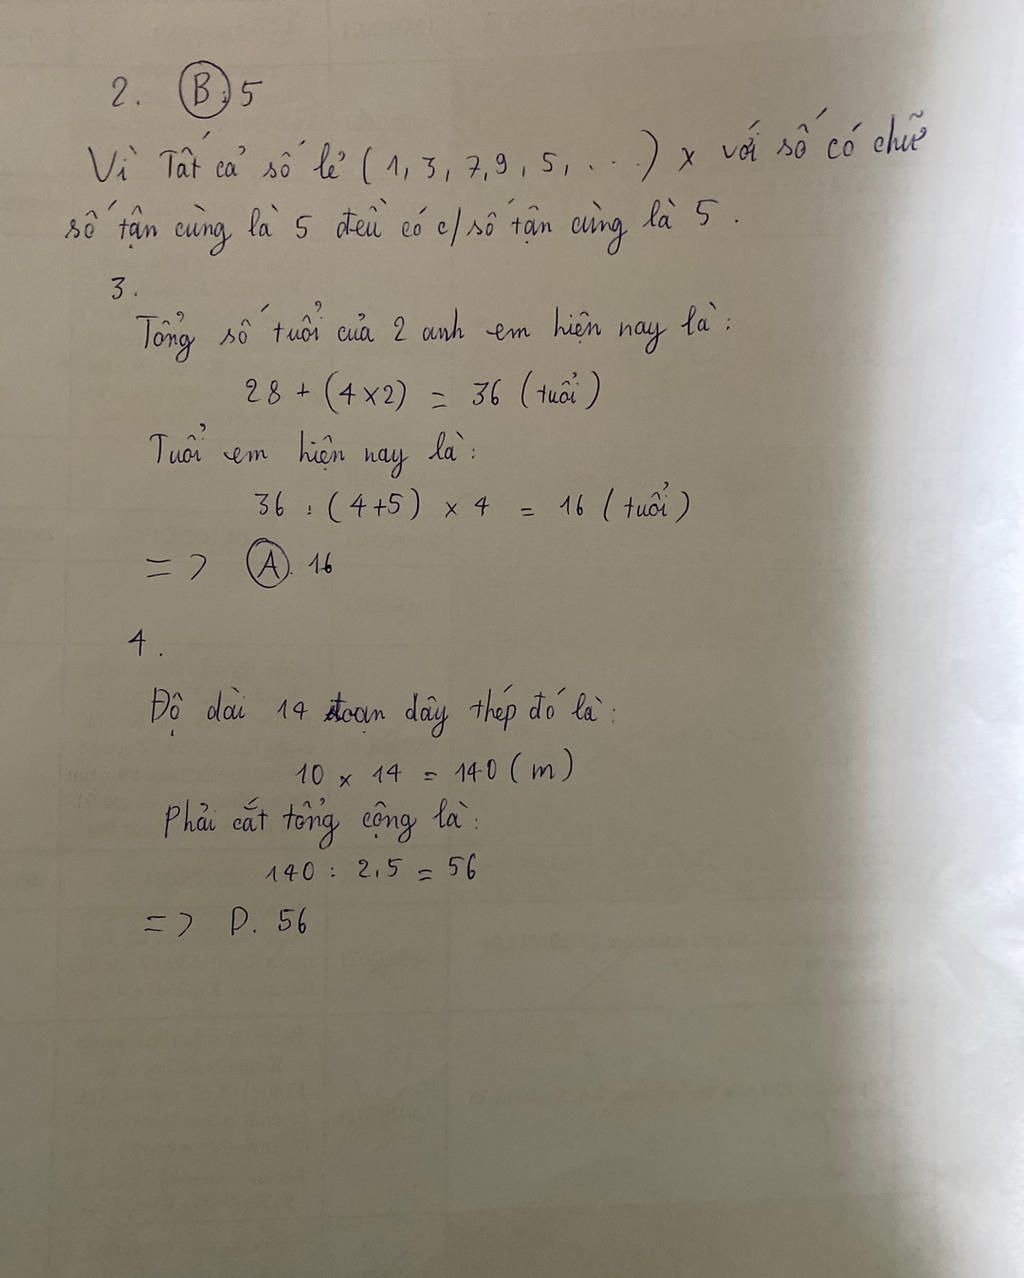 2. B. 5
Vì Tất cả số lẻ (1, 3, 7, 9, 5, ...) x với số có chữ
số tận cùng là 5 đều có c/số tận cùng là 5.
3.
Tổng số tuổi của 2 anh em hiện nay là:
28 + (4x2) = 36 (tuổi)
Tuổi em hiện nay là:
36 : (4+5) x 4 = 16 (tuổi)
=> A. 16
4.
Độ dài 14 đoạn dây thép đó là:
10 x 14 = 140 (m)
Phải cắt tổng cộng là:
140 : 2,5 = 56
=> D. 56